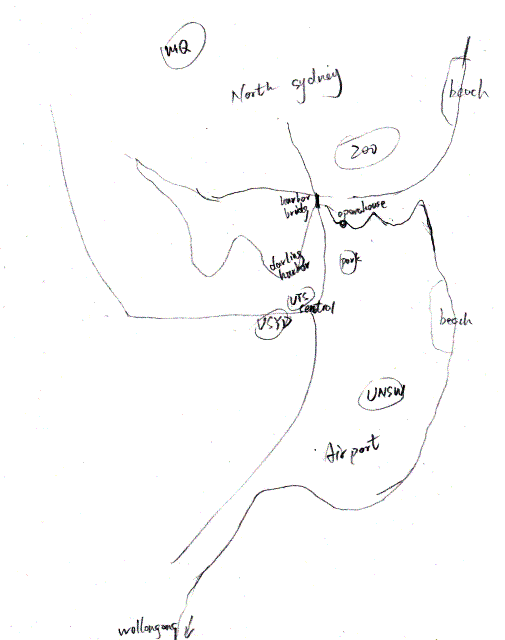 MQ
North Sydney
beach
ZOO
harbor
bridg
operahouse
darling
harbor
park
UTS
central
USYD
beach
UNSW
Airport
wollongong